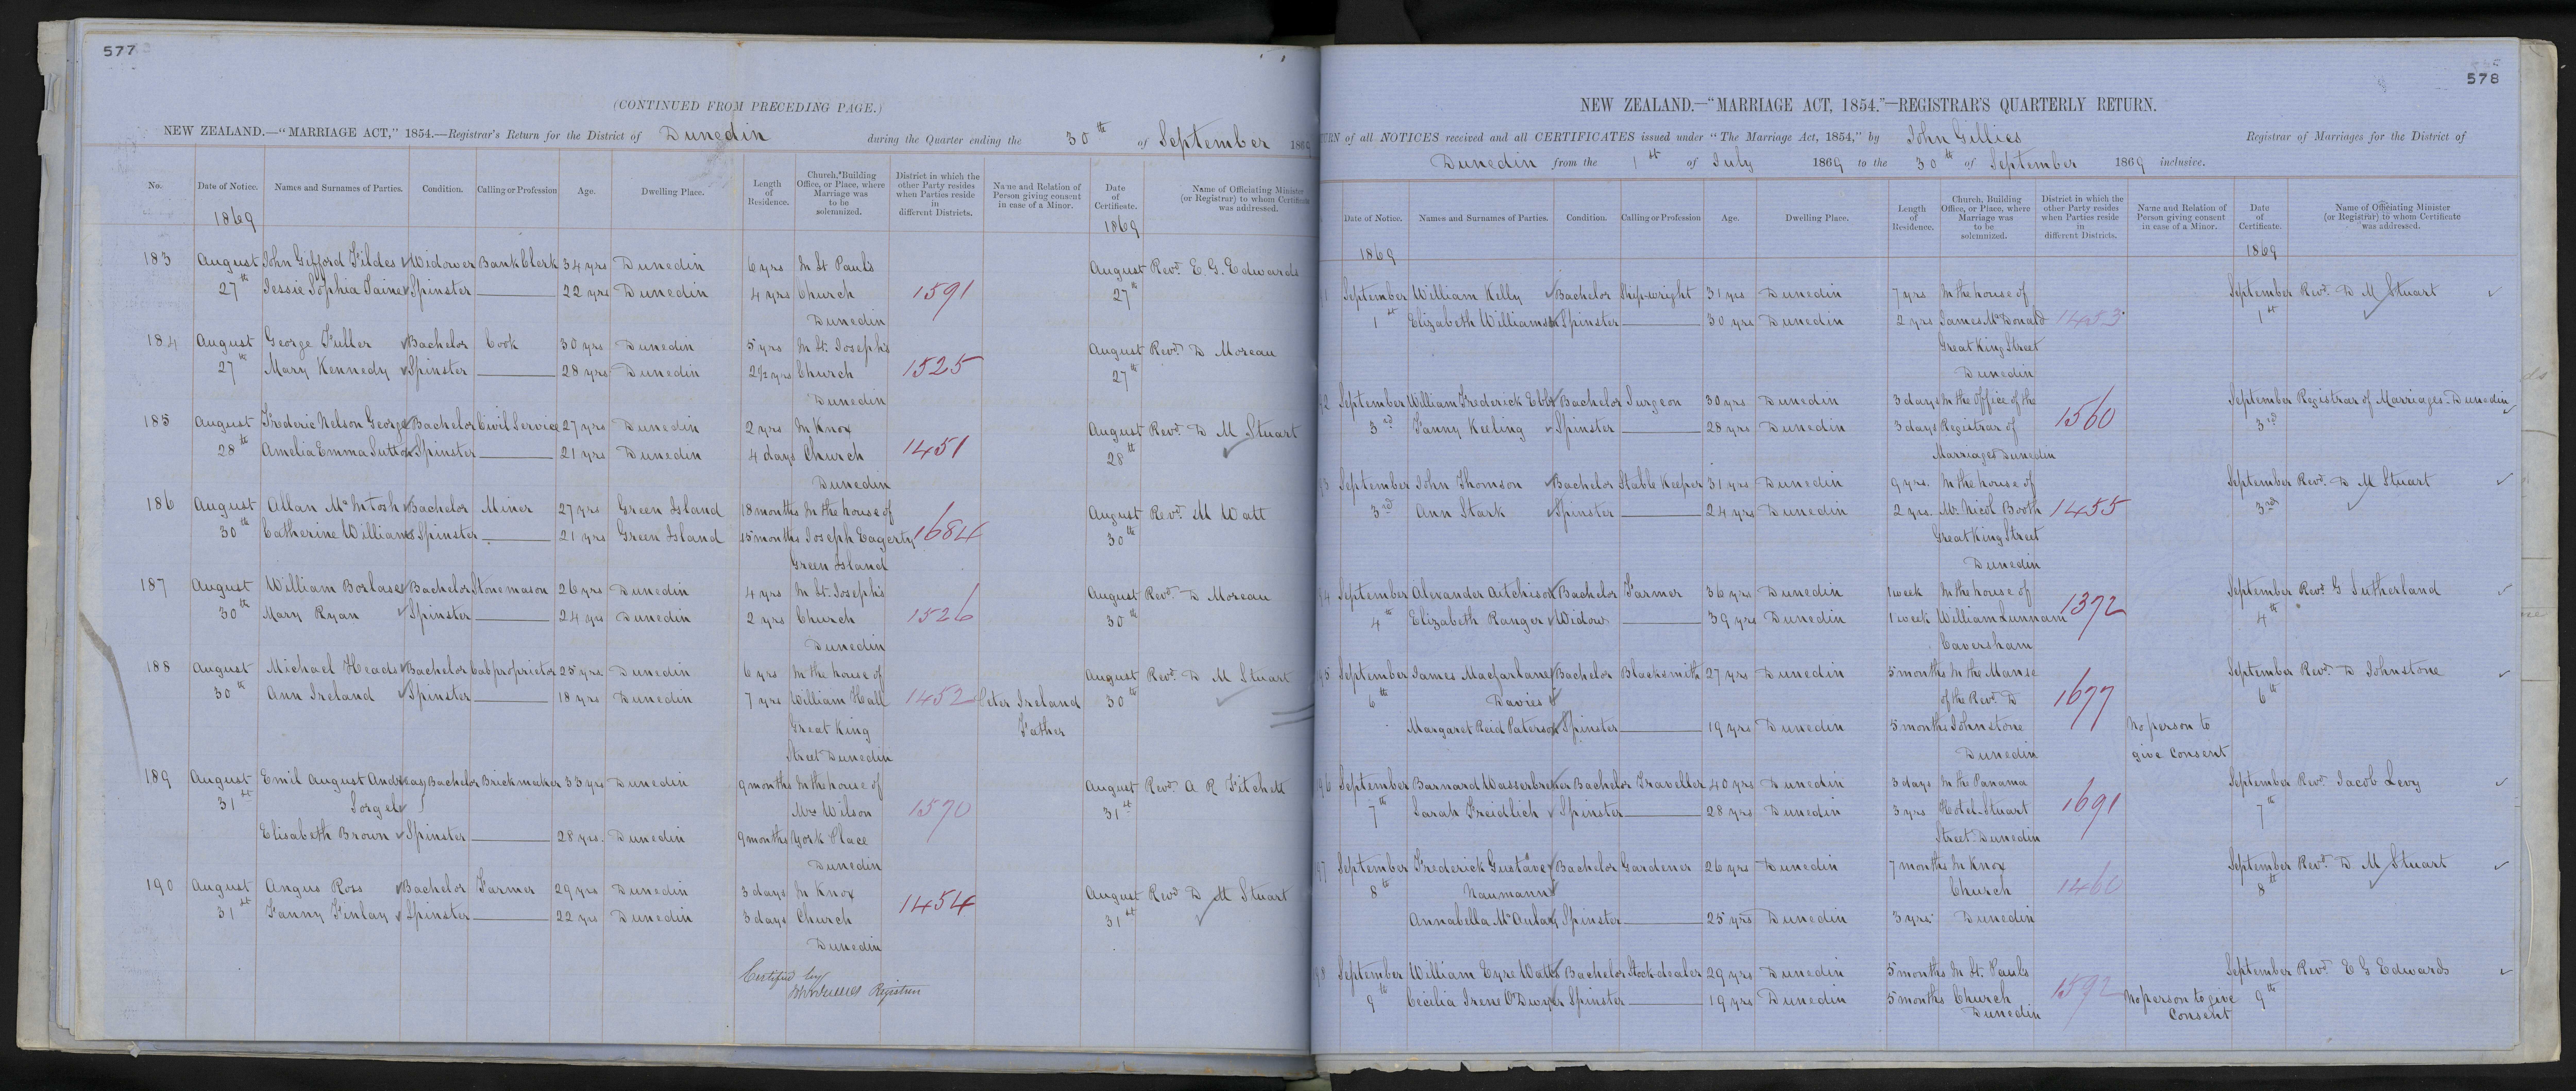 577
(CONTINUED FROM PRECEDING PAGE.)
NEW ZEALAND.—"MARRIAGE ACT," 1854.—Registrar's Return for the District of Dunedin during the Quarter ending the 30th of September 1869
No. Date of Notice. Names and Surnames of Parties. Condition. Calling or Profession Age. Dwelling Place. Length of Residence. Church, Building Office, or Place, where Marriage was to be solemnized. District in which the other Party resides when Parties reside in different Districts. Name and Relation of Person giving consent in case of a Minor. Date of Certificate. Name of Officiating Minister (or Registrar) to whom Certificate was addressed.
1869 1869
183 August John Gifford Fildes Widower Bank Clerk 34 yrs Dunedin 6 yrs In St Paul's August Revd. E. G. Edwards
27th Jessie Sophia Spinster 22 yrs Dunedin 4 yrs Church 1591 27th
Dunedin
184 August George Fuller Bachelor Cook 30 yrs Dunedin 5 yrs In St. Joseph's August Revd. D Moreau
27th Mary Kennedy Spinster 28 yrs Dunedin 2½ yrs Church 1525 27th
Dunedin
185 August Frederic Nelson George Bachelor Civil Service 27 yrs Dunedin 2 yrs In Knox August Revd. D M Stuart
28th Amelia Emma Sutton Spinster 21 yrs Dunedin 4 days Church 1451 28th
Dunedin
186 August Allan McIntosh Bachelor Miner 27 yrs Green Island 18 months In the house of August Revd. M Watt
30th Catherine Williams Spinster 21 yrs Green Island 15 months Joseph Eagerty 1684 30th
Green Island
187 August William Borlase Bachelor Stonemason 26 yrs Dunedin 4 yrs In St. Joseph's August Revd. D Moreau
30th Mary Ryan Spinster 24 yrs Dunedin 2 yrs Church 1526 30th
Dunedin
188 August Michael Heads Bachelor Cab proprietor 25 yrs. Dunedin 6 yrs In the house of August Revd. D M Stuart
30th Ann Ireland Spinster 18 yrs Dunedin 7 yrs William Hall 1452 Peter Ireland 30th
Great King Father
Street Dunedin
189 August Emil August Andreas Bachelor Brickmaker 33 yrs Dunedin 9 months In the house of August Revd. A R Fitchett
31st Sorgel Mrs Wilson 1570 31st
Elisabeth Brown Spinster 28 yrs. Dunedin 9 months York Place
Dunedin
190 August Angus Ross Bachelor Farmer 29 yrs Dunedin 3 days In Knox August Revd D M Stuart
31st Fanny Finlay Spinster 22 yrs Dunedin 3 days Church 1454 31st
Dunedin
Certified by
John Gillies Registrar
578
NEW ZEALAND.—"MARRIAGE ACT, 1854."—REGISTRAR'S QUARTERLY RETURN.
URN of all NOTICES received and all CERTIFICATES issued under "The Marriage Act, 1854," by John Gillies Registrar of Marriages for the District of
Dunedin from the 1st of July 1869 to the 30th of September 1869 inclusive.
Date of Notice. Names and Surnames of Parties. Condition. Calling or Profession Age. Dwelling Place. Length of Residence. Church, Building Office, or Place, where Marriage was to be solemnized. District in which the other Party resides when Parties reside in different Districts. Name and Relation of Person giving consent in case of a Minor. Date of Certificate. Name of Officiating Minister (or Registrar) to whom Certificate was addressed.
1869 1869
1 September William Kelly Bachelor Shipwright 31 yrs Dunedin 7 yrs. In the house of September Revd. D M Stuart
1st Elizabeth Williams Spinster 30 yrs Dunedin 2 yrs James McDonald 1453 1st
Great King Street
Dunedin
2 September William Frederick Bachelor Surgeon 30 yrs Dunedin 3 days In the Office of the September Registrar of Marriages. Dunedin
3rd Fanny Keeling Spinster 28 yrs Dunedin 3 days Registrar of 1560 3rd
Marriages Dunedin
3 September John Thomson Bachelor Stable Keeper 31 yrs Dunedin 9 yrs. In the house of September Revd. D M Stuart
3rd Ann Stark Spinster 24 yrs Dunedin 2 yrs. Mr. Nicol Booth 1455 3rd
Great King Street
Dunedin
4 September Alexander Aitchison Bachelor Farmer 36 yrs Dunedin 1 week In the house of September Revd. G Sutherland
4th Elizabeth Ranger Widow 39 yrs Dunedin 1 week William Lunnam 1372 4th
Caversham
5 September James Macfarlane Bachelor Blacksmith 27 yrs Dunedin 5 months In the Manse September Revd. D Johnstone
6th Davies of the Revd. D 1677 6th
Margaret Reid Paterson Spinster 19 yrs Dunedin 5 months Johnstone No person to
Dunedin give consent
96 September Barnard Wasserbreker Bachelor Traveller 40 yrs Dunedin 3 days In the Panama September Revd. Jacob Levy
7th Sarah Freidlich Spinster 28 yrs Dunedin 3 yrs Hotel Stuart 1691 7th
Street Dunedin
97 September Frederick Gustave Bachelor Gardener 26 yrs Dunedin 7 months In Knox September Revd. D M Stuart
8th Naumann Church 1460 8th
Annabella McAulay Spinster 25 yrs Dunedin 3 yrs. Dunedin
98 September William Eyre Watt Bachelor Stock dealer 29 yrs Dunedin 5 months In St. Paul's September Revd. E G Edwards
9th Cecilia Irene O'Dwyer Spinster 19 yrs Dunedin 5 months Church 1592 No person to give 9th
Dunedin Consent